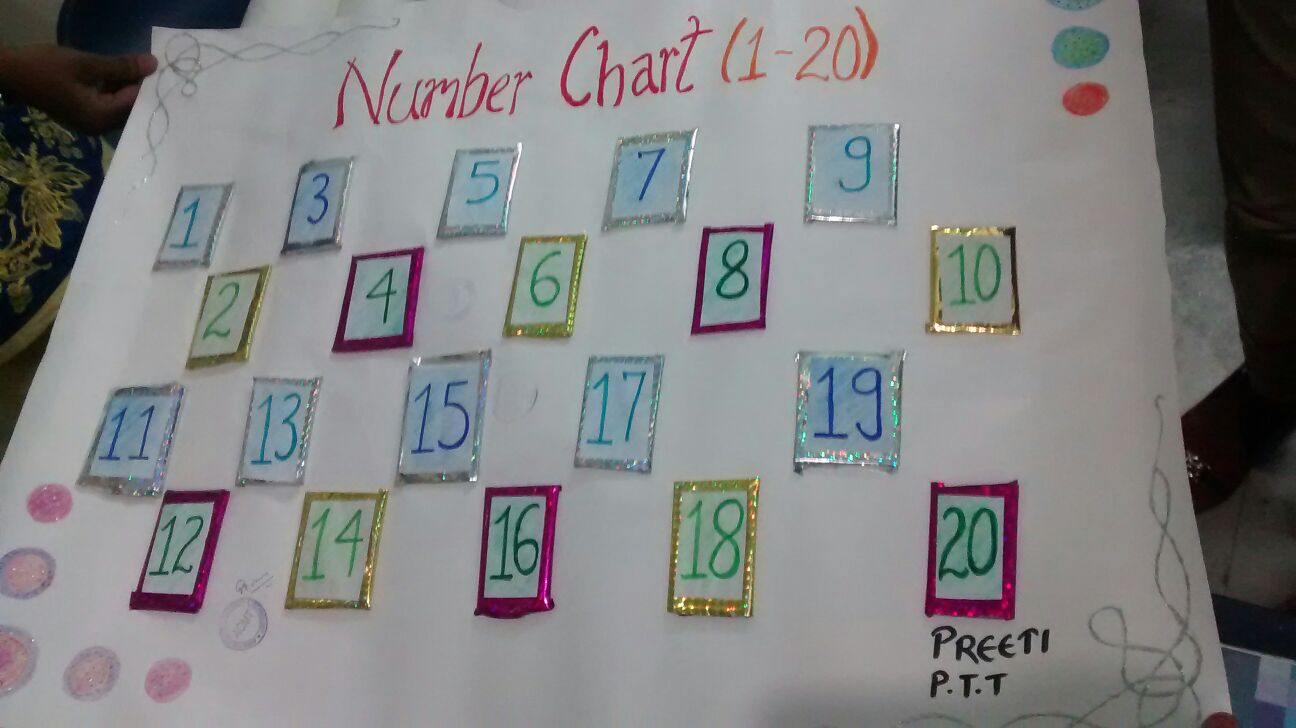 Number Chart (1-20)
1 3 5 7 9
2 4 6 8 10
11 13 15 17 19
12 14 16 18 20
PREETI
P.T.T